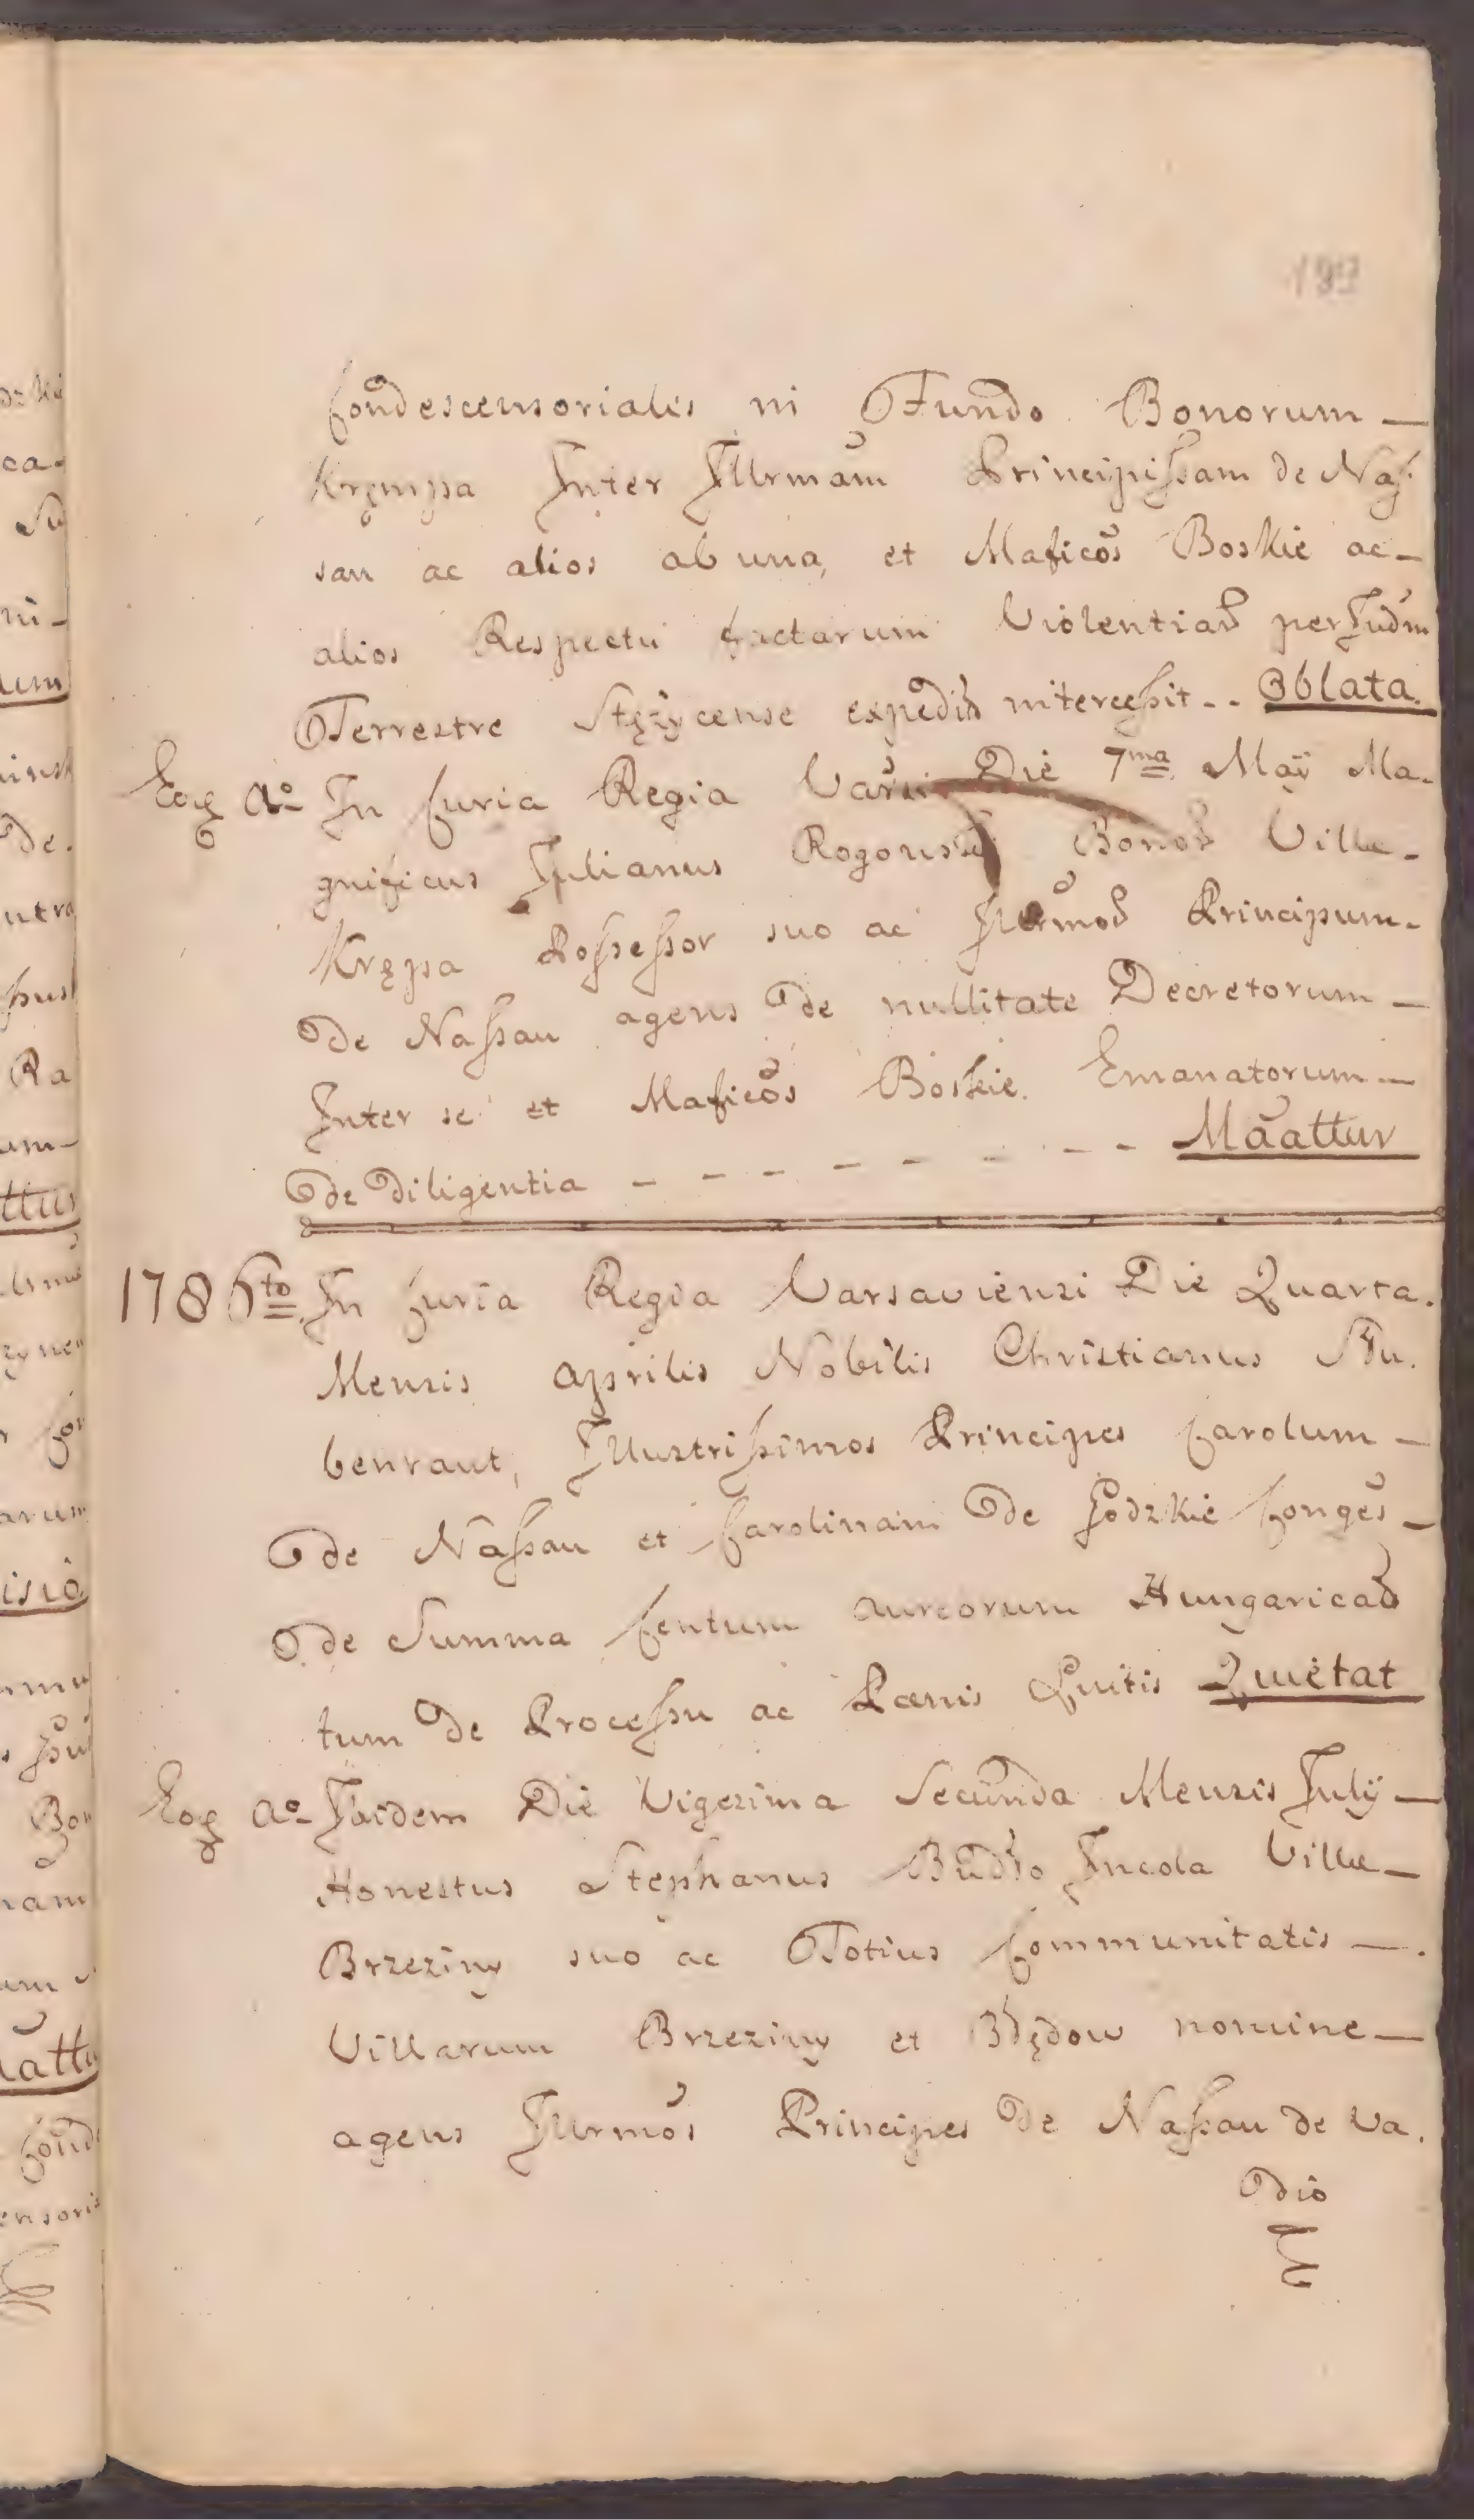 193
Condescensorialis in Fundo Bonorum —
Krempa Inter Illrmam Principissam de Nas:
sau ac alios ab una, et Mafficos Boskie ac —
alios Respectu factarum Violentiar per Judm
Terrestre Stężycense expedit intercessit .. Oblata.
Eoq Ao In Curia Regia Varsi Die 7ma May Ma-
gnificus Julianus Rogouski Bonor Villæ -
Krępa Possessor suo ac Illrmor Principum -
De Nassau agens de nullitate Decretorum —
Inter se et Mafficos Boskie Emanatorum —
de Diligentia - - - - - - - - Maattur
1786to In Curia Regia Varsaviensi Die Quarta.
Mensis Aprilis Nobilis Christianus Stu.
benraut, Illustrissimos Principes Carolum —
de Nassau et Carolinam de Godzkie Conges —
de Summa Centum aureorum Hungaricar
tum de Processu ac Pœnis Luitis Quietat
Eoq Ao Ibidem Die Vigesima Secunda Mensis July —
Honestus Stephanus Budło Incola Villæ —
Brzeziny suo ac Totius Communitatis — .
Villarum Brzeziny et Błędow nomine —
agens Illrmos Principes de Nassau de Va.
dio